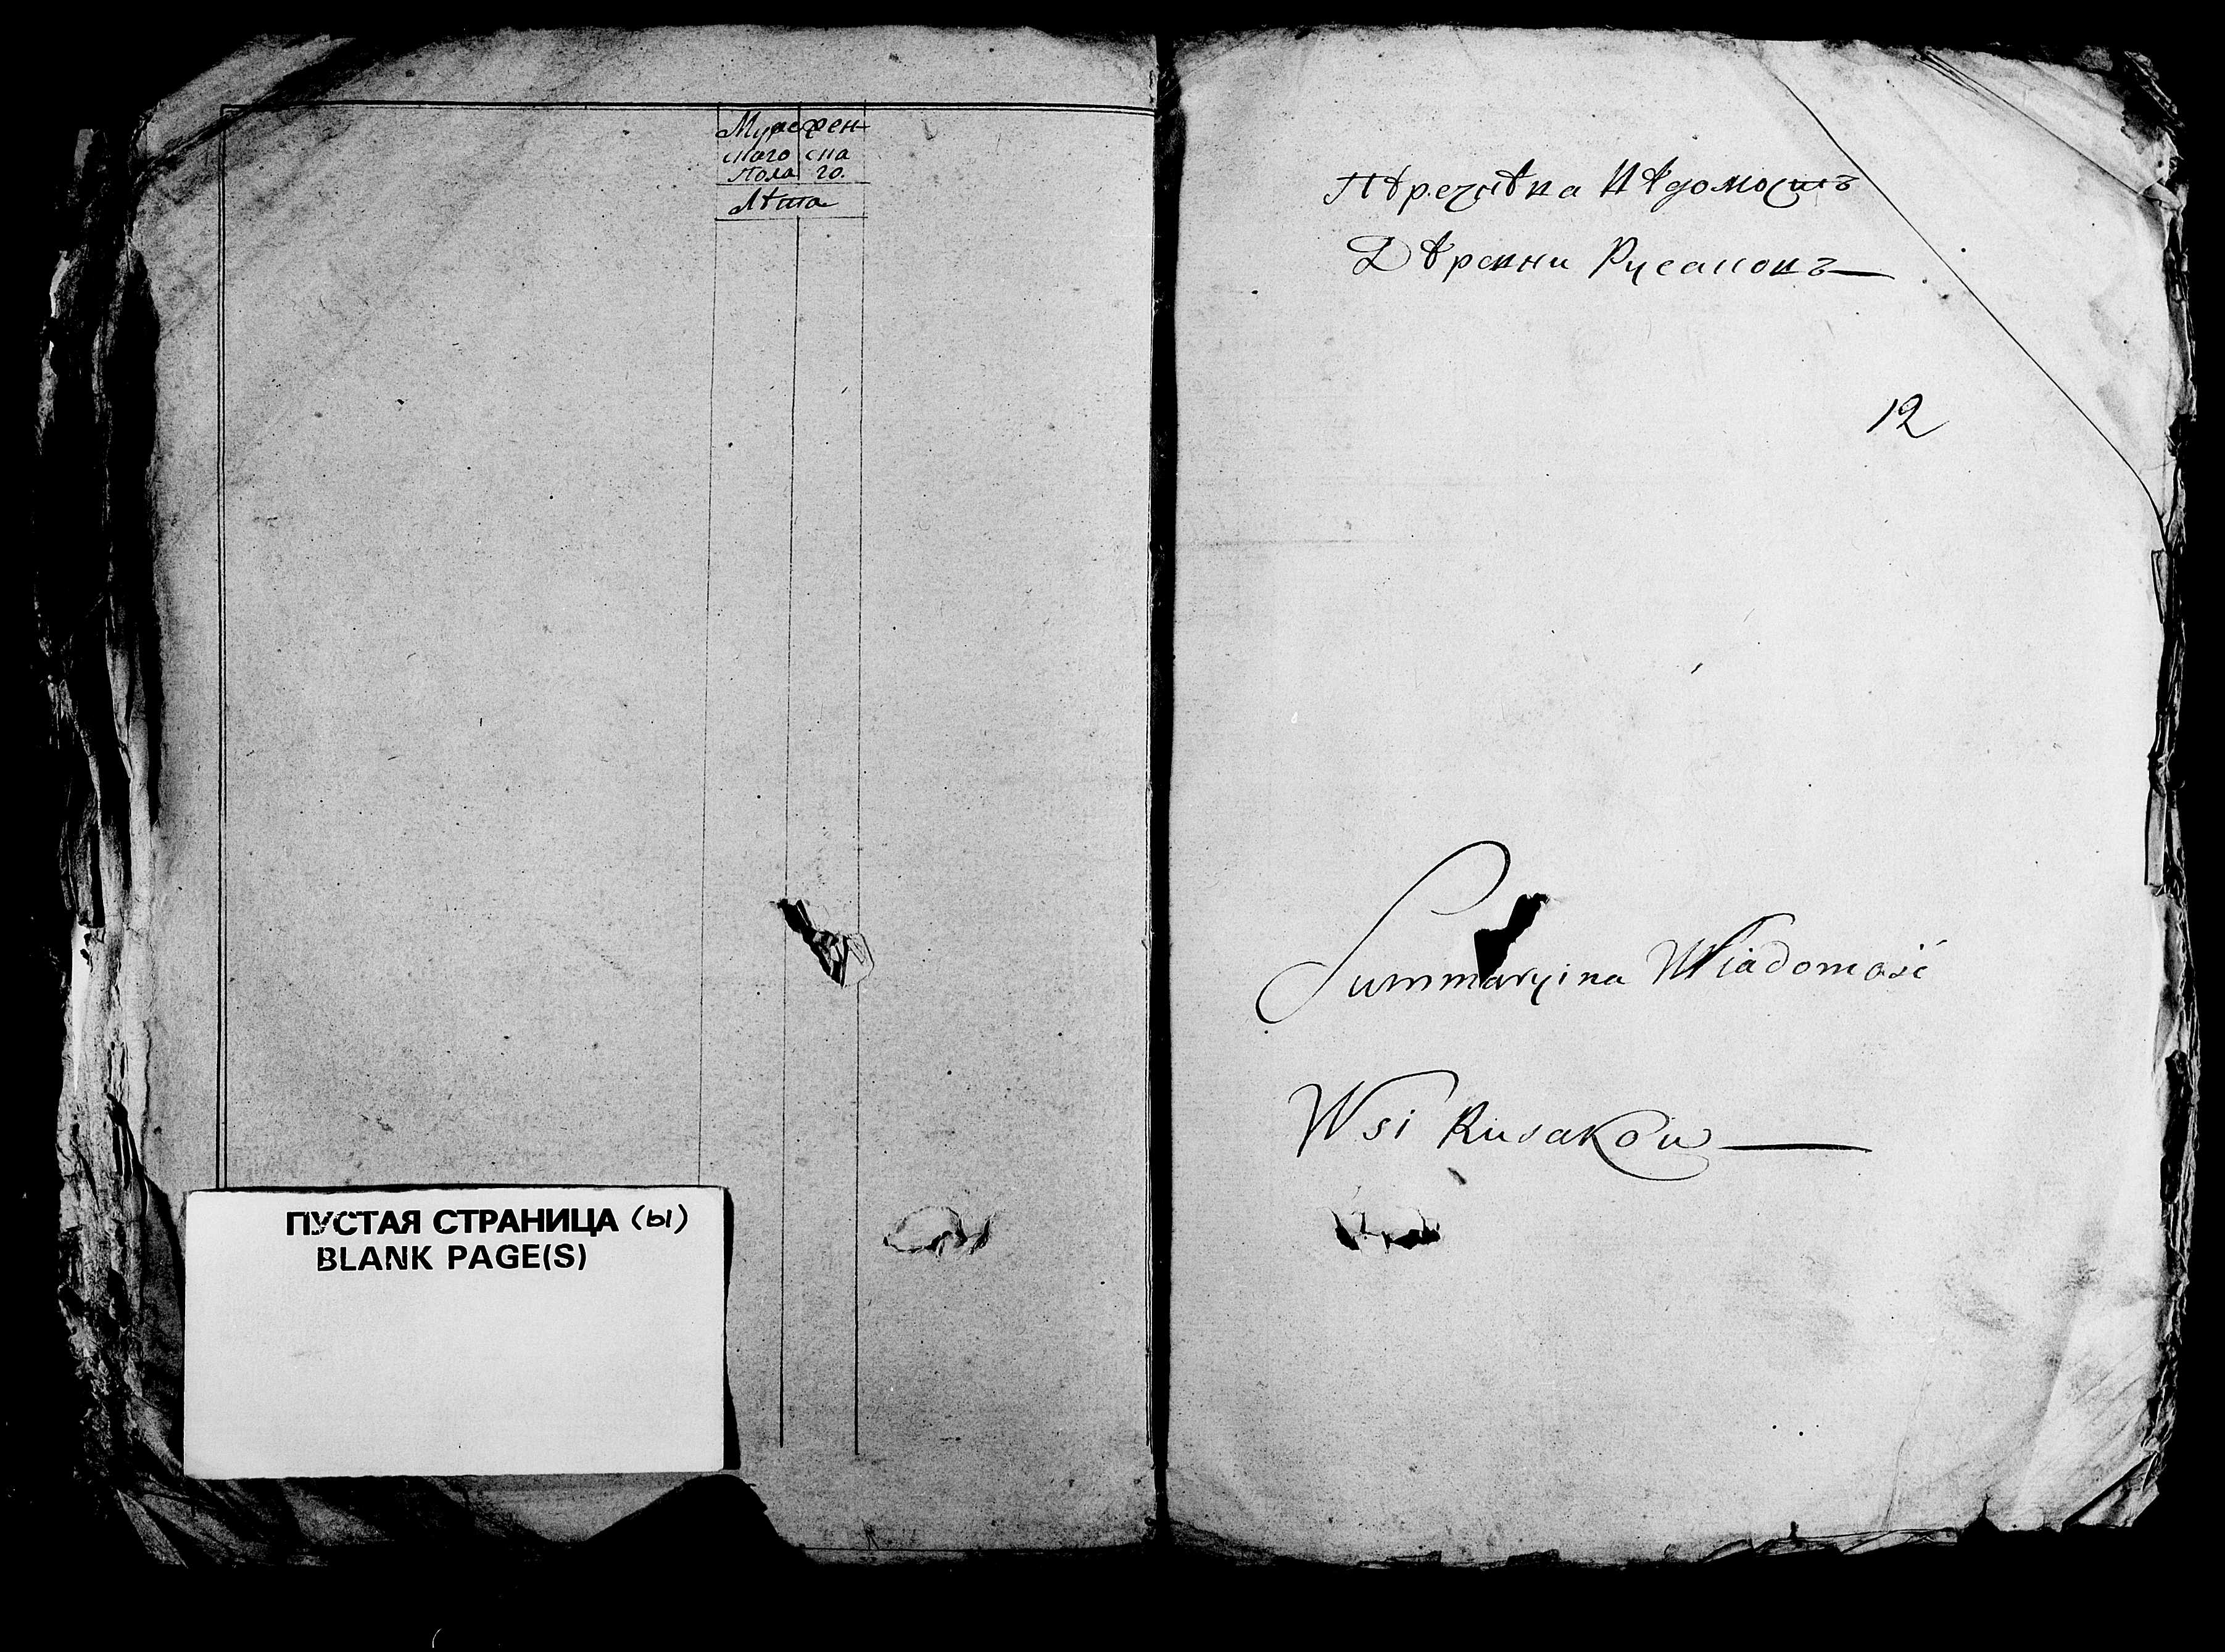 Мужефен
скаго ска
Пола го.
Лѣта
ПУСТАЯ СТРАНИЦА (Ы)
BLANK PAGE(S)
Пѣречнѣва Вѣдомость
Дѣревни Русановъ
12
Summaryina Wiadomość
Wsi Rusaków